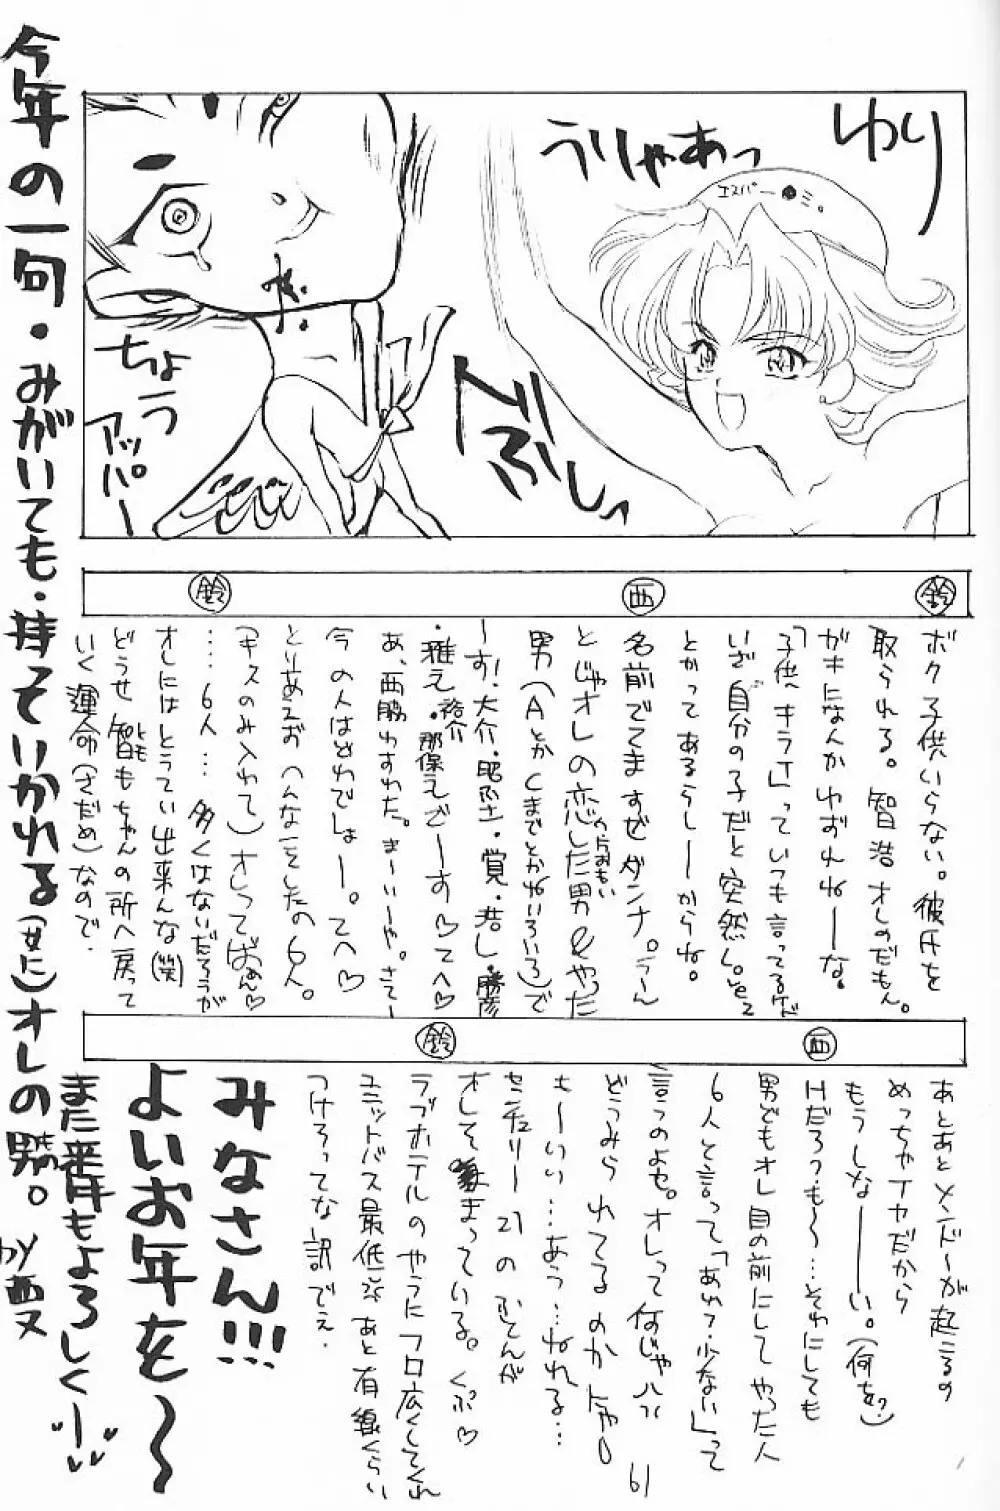 ゆり
うりゃあっ
エスパー●ミ。
ぶしっ
ちょう
アッパー
鈴
ボク子供いらない。彼氏を
取られる。智浩オレのだもん。
ガキになんかわたさねーな。
「子供、キライ」っていつも言ってるケド
いざ自分の子だと突然
とかってあるらしーからね。
西
名前でてますぜダンナ。うーん
とじゃオレの恋した男&やった
片おもい
男(AとかCまでとかいろいろ)で
ーす!大介・昭・覚・・勝彦
・雅え・裕介・那保えでーす♡てへ♡
あ、西脇わすれた。まーいーや。さてー
今の人はどれでしょー。てへ♡
とりあえず Hなことしたの6人。
鈴
(キスのみ入れて)オレってばぁん♡
…6人…多くはないだろうが
オレにはとうてい出来んな(笑)
どうせ智もちゃんの所へ戻って
とも
いく運命(さだめ)なので、
あとあとメンドーが起こるの
めっちゃイヤだから
もうしなーーい。(何を?)
西
Hだろっ・も〜…それにしても
男どもオレ目の前にしてやった人
6人と言って「あれ?少ない」って
言うのよせ。オレって何じゃ
どうみられてるのかにゃ
えーいい…あう…ねれる…
鈴
センチュリー21のふとんが
オレそまっている。くぷ♡
ラブホテルのようにフロ広くしてくれ
ユニットバス最低 あと有線くらい
つけろってな訳でえ
みなさん!!!
よいお年を〜
また来年もよろしくー
今年の一句・みがいても・持ていかれる(せに)オレの男。
by西
61